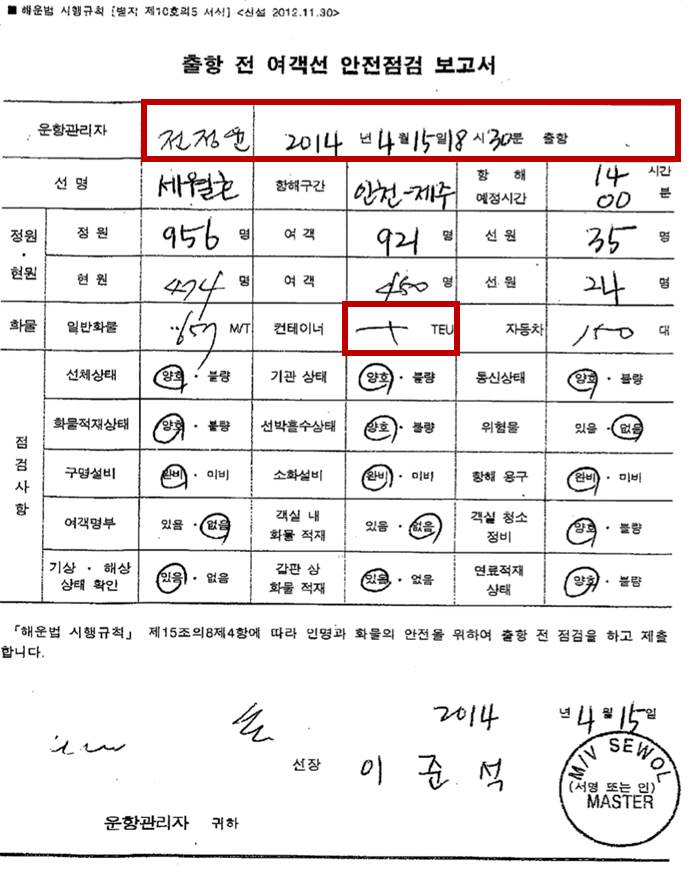 ■ 해운법 시행규칙 [별지 제10호의5 서식] <신설 2012.11.30>
출항 전 여객선 안전점검 보고서
운항관리자 전정윤 2014 년 4 월 15 일 18 시 30 분 출항
선 명 세월호 항해구간 인천-제주 항 해 예정시간 14 시간 00 분
정원·현원 정 원 956 명 여 객 921 명 선 원 35 명
현 원 474 명 여 객 450 명 선 원 24 명
화물 일반화물 657 M/T 컨테이너 TEU 자동차 150 대
점검사항 선체상태 양호 · 불량 기관 상태 양호 · 불량 통신상태 양호 · 불량
화물적재상태 양호 · 불량 선박흘수상태 양호 · 불량 위험물 있음 · 없음
구명설비 완비 · 미비 소화설비 완비 · 미비 항해 용구 완비 · 미비
여객명부 있음 · 없음 객실 내 화물 적재 있음 · 없음 객실 청소 정비 양호 · 불량
기상 · 해상 상태 확인 있음 · 없음 갑판 상 화물 적재 있음 · 없음 연료적재 상태 양호 · 불량
「해운법 시행규칙」 제15조의8제4항에 따라 인명과 화물의 안전을 위하여 출항 전 점검을 하고 제출
합니다.
2014 년 4 월 15 일
선장 이 준 석 (서명 또는 인)
M/V SEWOL
MASTER
운항관리자 귀하